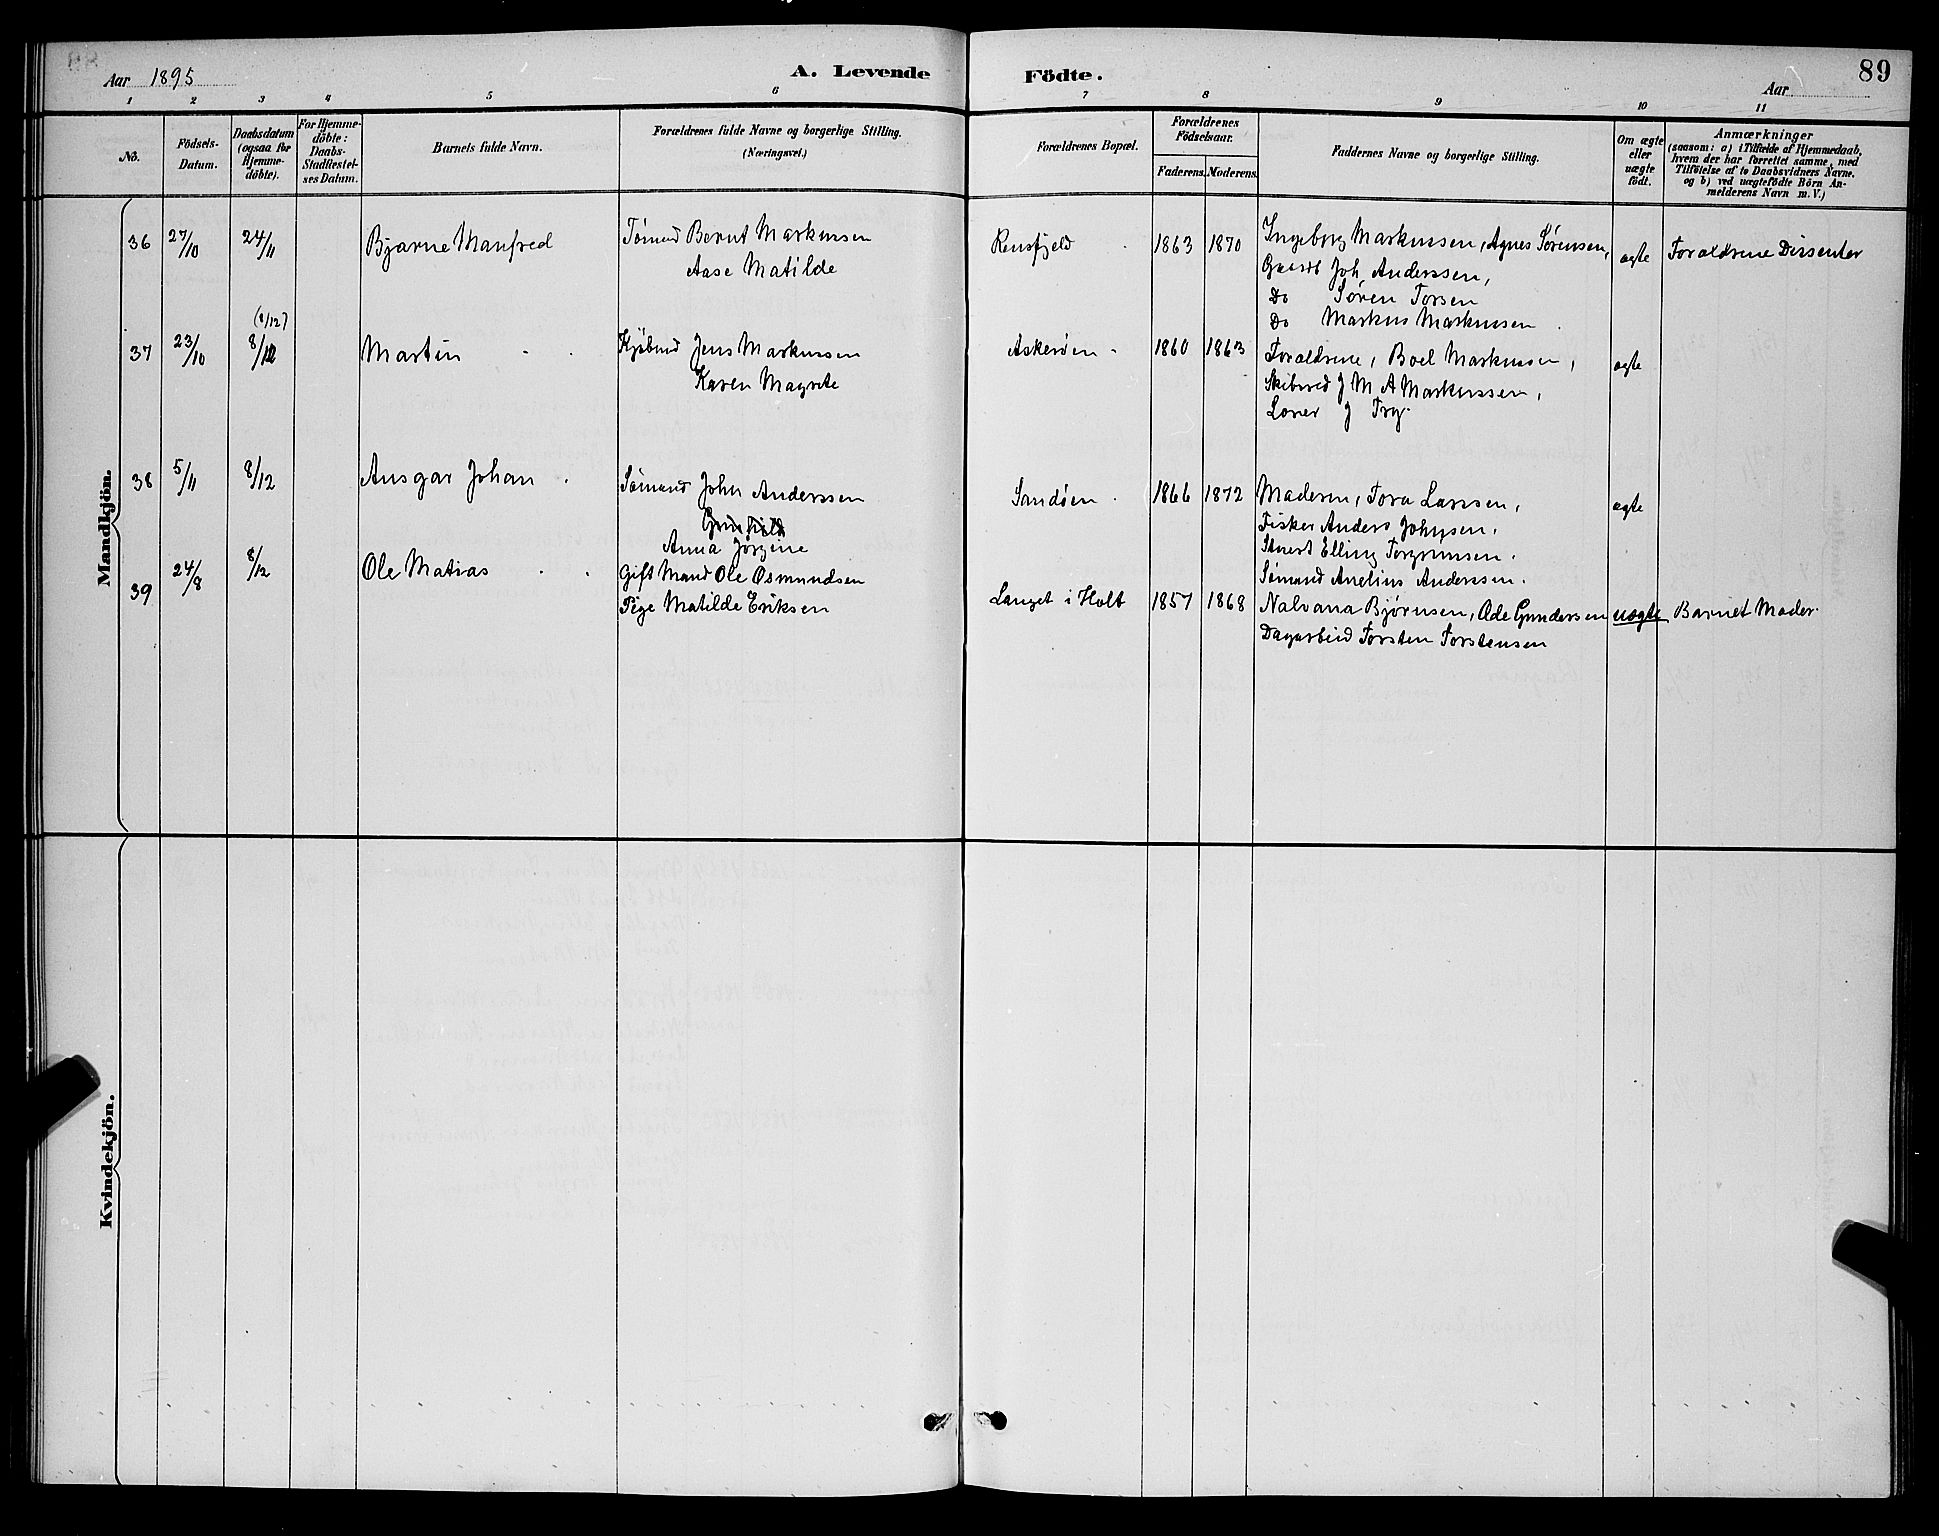 Aar 1895
A. Levende
Födte.
Aar
89
1 2 3 4 5 6 7 8 9 10 11
No.
Födsels-
Datum.
Daabsdatum
(ogsaa for
Hjemme-
döbte).
For Hjemme-
döbte:
Daabs-
Stadfæstel-
ses Datum.
Barnets fulde Navn.
Forældrenes fulde Navne og borgerlige Stilling.
(Næringsvei.)
Forældrenes Bopæl.
Forældrenes
Födselsaar.
Faderens. Moderens.
Faddernes Navne og borgerlige Stilling.
Om ægte
eller
uægte
födt.
Anmærkninger
(saasom: a) i Tilfælde af Hjemmedaab,
hvem der har forrettet samme, med
Tilföielse af to Daabsvidners Navne.
og b) ved uægtefödte Börn An-
melderens Navn m. V.)
Mandkjön.
36 27/10 24/11 Bjarne Manfred Tømmd Bernt Markussen Rensfjeld 1863 1870 Ingeborg Markussen, Agnes Sørensen, ægte Forældrene Dissenter
Aase Matilde
Gaardb Joh Anderssen,
Do Søren Torsen
Do Markus Markussen
(8/12)
37 23/10 8/12 Martin Kjøbmd Jens Markussen Askerøen 1860 1863 Forældrene, Boel Markussen, ægte
Karen Magrete
Skibsred J M A Markussen,
J Try.
38 5/11 8/12 Ansgar Johan Sømand John Anderssen Sandøen 1866 1872 Moderen, Tora Larssen, ægte
Gunhild
Anna Jörgine
Fisker Anders Johnsen.
Elling Torgrimsen.
Sømand Anelius Anderssen.
39 24/8 8/12 Ole Matias Gift Mand Ole Osmundsen Langet i Holt 1857 1868 Nalvana Bjørnsen, Ole Gundersen uægte Barnet Moder
Pige Matilde Eriksen
Dagarbeid Torsten Torstensen
Kvindekjön.